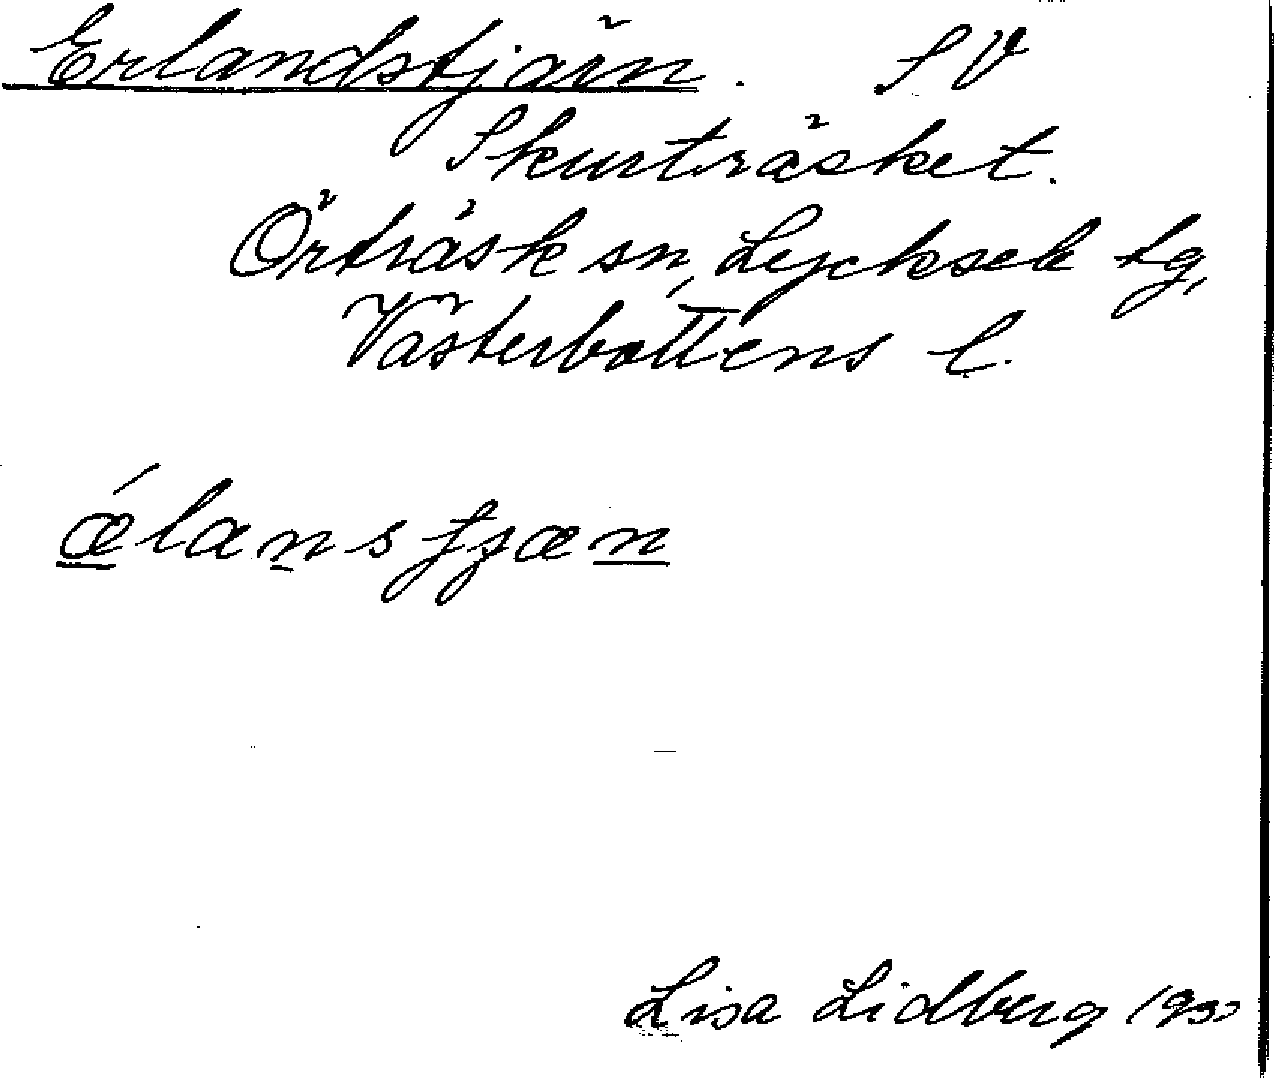 Erlandstjärn. SV
Skurträsket.
Örträsk sn, Lycksele tg,
Västerbottens l.
ǽlansʃȷæn
Lisa Lidberg 1930